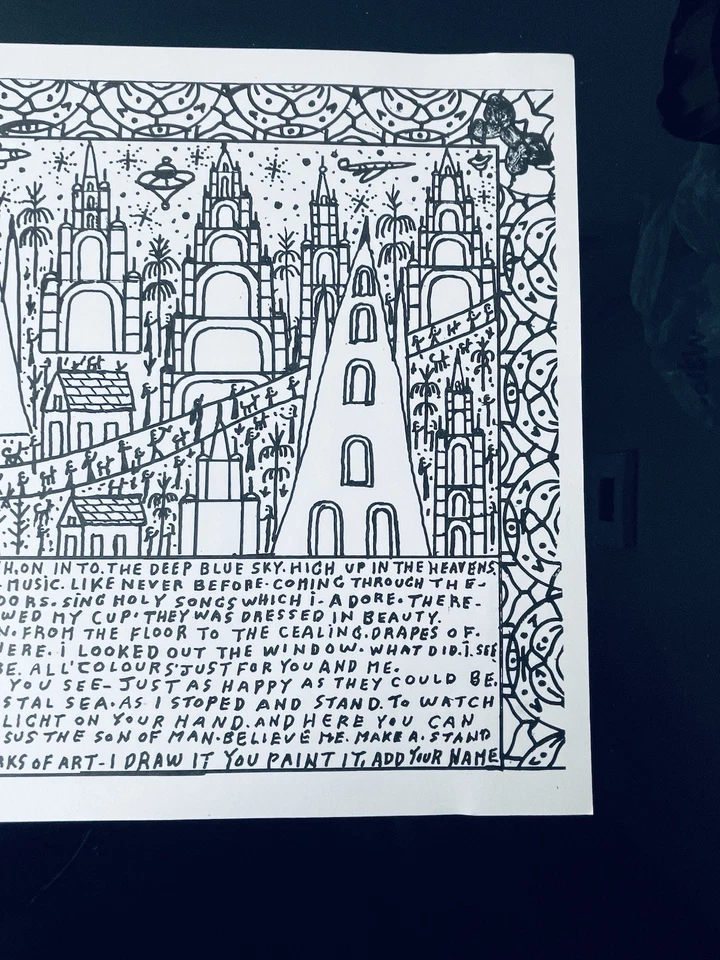 H.ON IN TO.THE DEEP BLUE SKY.HIGH UP IN THE HEAVENS.
MUSIC. LIKE NEVER BEFORE.COMING THROUGH THE-
DORS.SING HOLY SONGS WHICH i. ADORE.THERE-
WED MY CUP.THEY WAS DRESSED IN BEAUTY.
N. FROM THE FLOOR TO THE CEALING.DRAPES OF.
ERE. i LOOKED OUT THE WINDOW.WHAT DID.i.SEE
BE. ALL'COLOURS'JUST FOR YOU AND ME.
YOU SEE-JUST AS HAPPY AS THEY COULD BE.
STAL SEA.AS I STOPED AND STAND.TO WATCH
LIGHT ON YOUR HAND.AND HERE YOU CAN
SUS THE SON OF MAN.BELIEVE ME.MAKE A.STAND
RKS OF ART-I DRAW IT YOU PAINT IT, ADD YOUR NAME